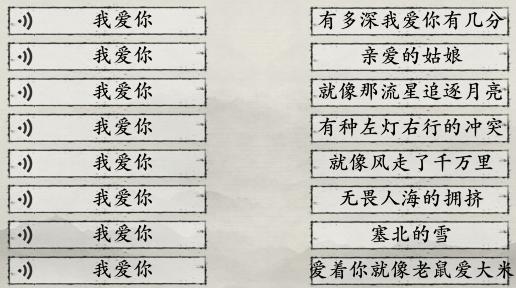 我爱你
有多深我爱你有几分
我爱你
亲爱的姑娘
我爱你
就像那流星追逐月亮
我爱你
有种左灯右行的冲突
我爱你
就像风走了千万里
我爱你
无畏人海的拥挤
我爱你
塞北的雪
我爱你
爱着你就像老鼠爱大米